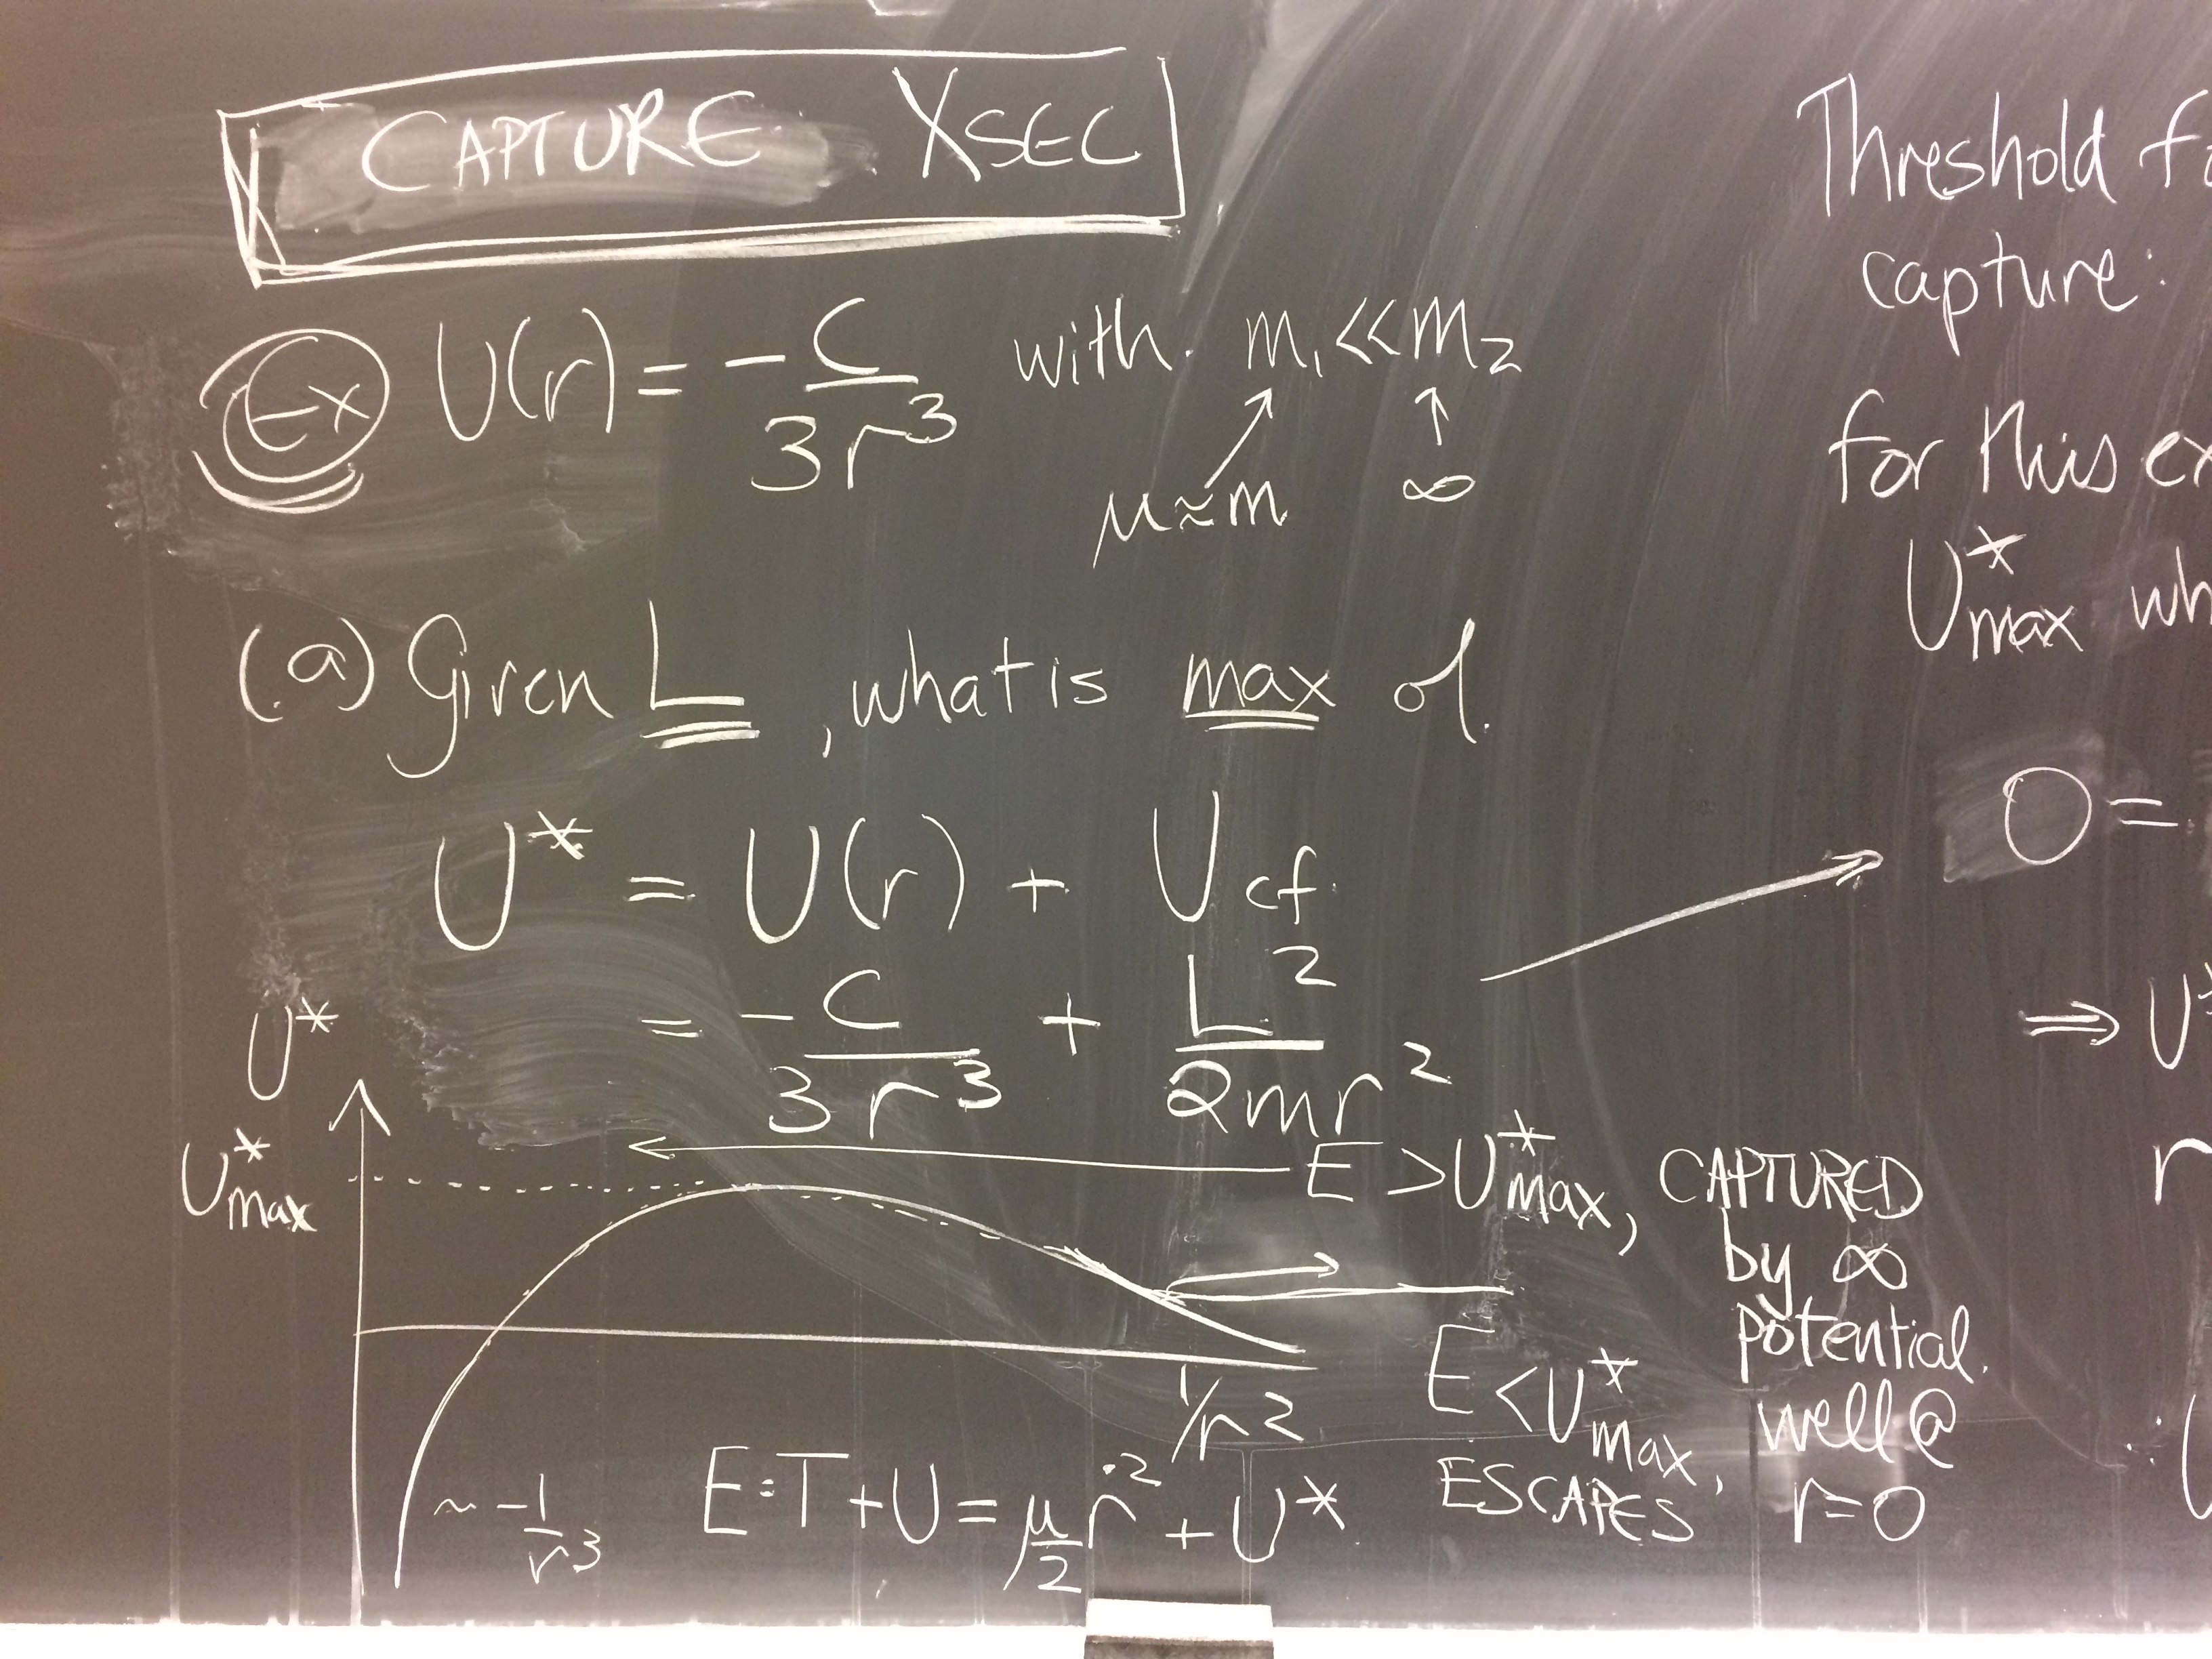 CAPTURE XSEC
Ex U(r) = -C/3r³ with m₁ << m₂
μ≈m ∞
(a) Given L, what is max of
U* = U(r) + Ucf
= -C/3r³ + L²/2mr²
U*
U*max
E > U*max, CAPTURED
by ∞
potential
well @
r=0
E < U*max,
ESCAPES
1/r²
~ -1/r³
E=T+U = μ/2 ṙ² + U*
Threshold
capture:
for this
U*max
0 =
⇒ U*
r